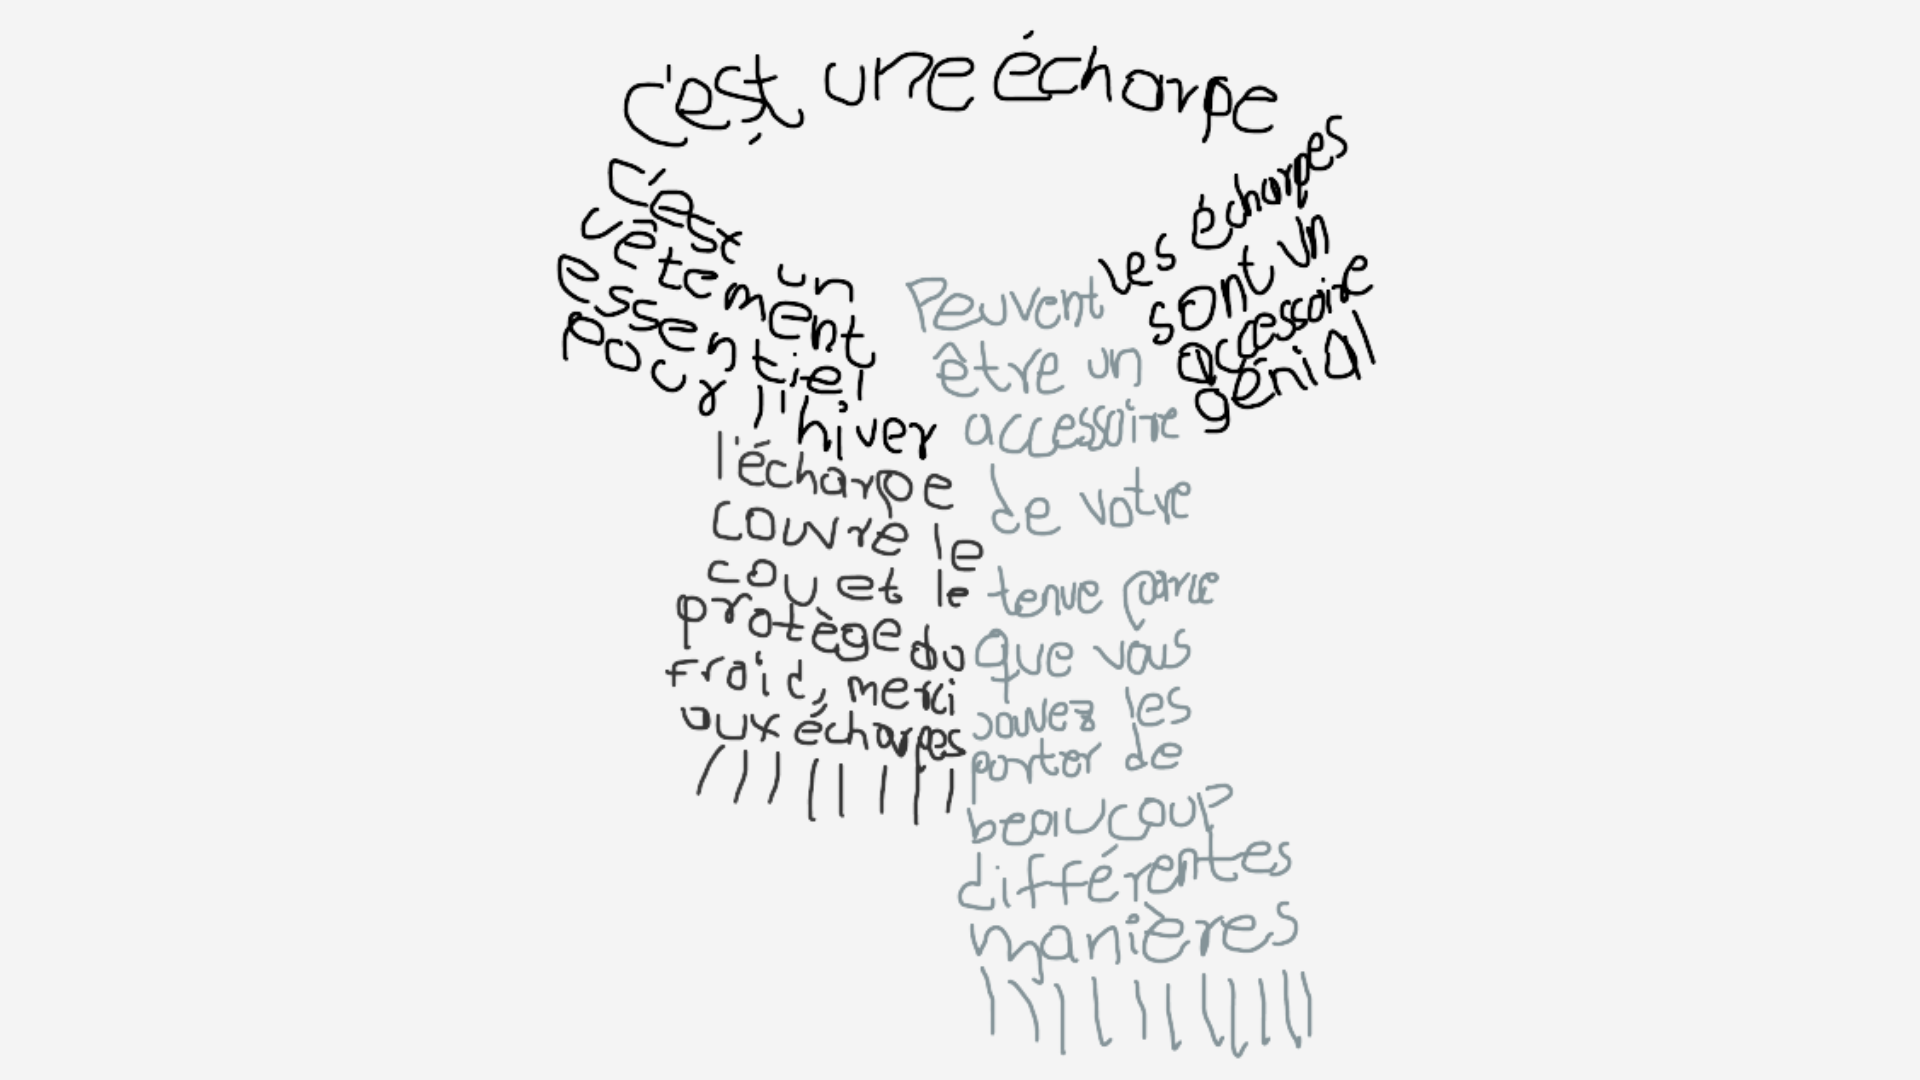 c'est une écharpe
c'est un
vêtement
essentiel
pour l'hiver
l'écharpe
couvre le
cou et le
protège du
froid, merci
aux écharpes
les écharpes
sont un
accessoire
génial
Peuvent
être un
accessoire
de votre
tenue parce
que vous
les
porter de
beaucoup
différentes
manières